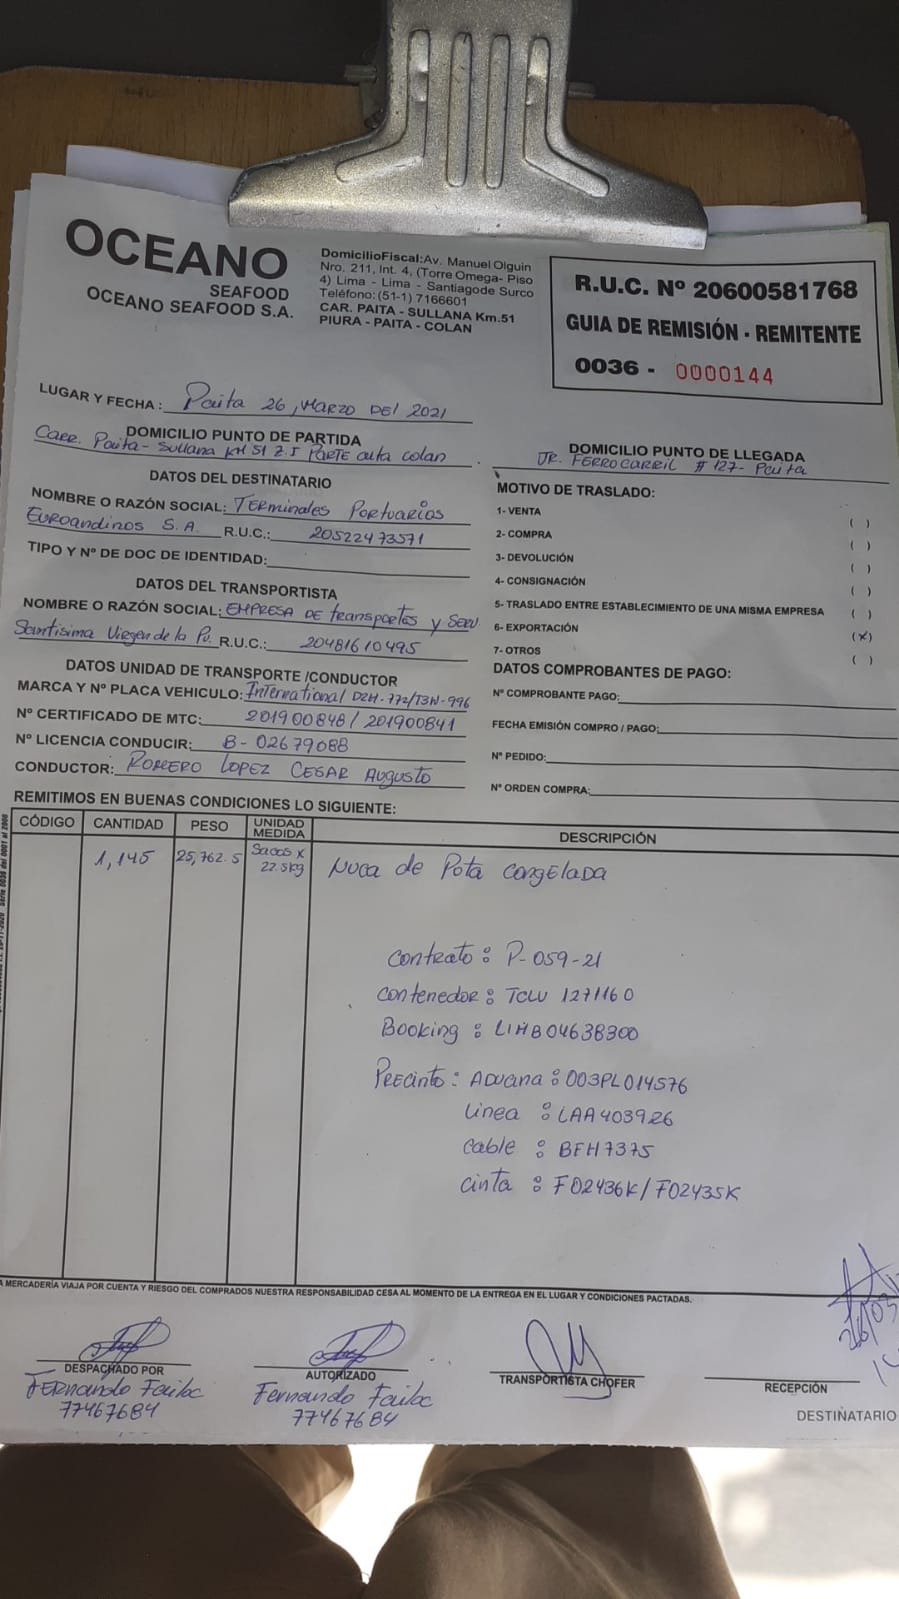 OCEANO
SEAFOOD
OCEANO SEAFOOD S.A.
DomicilioFiscal:Av. Manuel Olguin
Nro. 211, Int. 4, (Torre Omega- Piso
4) Lima - Lima - Santiagode Surco
Teléfono:(51-1) 7166601
CAR. PAITA - SULLANA Km.51
PIURA - PAITA - COLAN
R.U.C. Nº 20600581768
GUIA DE REMISIÓN - REMITENTE
0036 - 0000144
LUGAR Y FECHA : Paita 26, MARZO DEl 2021
DOMICILIO PUNTO DE PARTIDA
Carr. Paita- Sullana KM 51 Z.I PARTE alta colan
DOMICILIO PUNTO DE LLEGADA
JR. FERROCARRIL # 127- Paita
DATOS DEL DESTINATARIO
NOMBRE O RAZÓN SOCIAL: TERMinales Portuarios
Euroandinos S.A. R.U.C.: 20522473571
TIPO Y Nº DE DOC DE IDENTIDAD:
DATOS DEL TRANSPORTISTA
NOMBRE O RAZÓN SOCIAL: EMPRESA DE transportes y SERV
Santisima Virgen de la Pu. R.U.C.: 20481610495
DATOS UNIDAD DE TRANSPORTE /CONDUCTOR
MARCA Y Nº PLACA VEHICULO: International D2H-772/T3W-996
Nº CERTIFICADO DE MTC: 201900848/ 201900841
Nº LICENCIA CONDUCIR: B-02679088
CONDUCTOR: ROMERO LOPEZ CESAR AUgusto
MOTIVO DE TRASLADO:
1- VENTA ( )
2- COMPRA ( )
3- DEVOLUCIÓN ( )
4- CONSIGNACIÓN ( )
5- TRASLADO ENTRE ESTABLECIMIENTO DE UNA MISMA EMPRESA ( )
6- EXPORTACIÓN (X)
7- OTROS ( )
DATOS COMPROBANTES DE PAGO:
Nº COMPROBANTE PAGO:
FECHA EMISIÓN COMPRO / PAGO:
Nº PEDIDO:
Nº ORDEN COMPRA:
REMITIMOS EN BUENAS CONDICIONES LO SIGUIENTE:
CÓDIGO CANTIDAD PESO UNIDAD MEDIDA DESCRIPCIÓN
1,145 25,762.5 Sacos x 22.5kg Nuca de Pota congELADA
contrato : P-059-21
contenedor : TCLU 1271160
Booking : LIMB04638300
PRECinto : ADuana : 003PL014576
Linea : LAA403926
cable : BFH7375
cinta : F02436K/F02435K
A MERCADERÍA VIAJA POR CUENTA Y RIESGO DEL COMPRADOS NUESTRA RESPONSABILIDAD CESA AL MOMENTO DE LA ENTREGA EN EL LUGAR Y CONDICIONES PACTADAS.
DESPACHADO POR
FERnando Failoc
77467684
AUTORIZADO
Fernando Failoc
77467684
TRANSPORTISTA CHOFER
RECEPCIÓN
DESTINATARIO